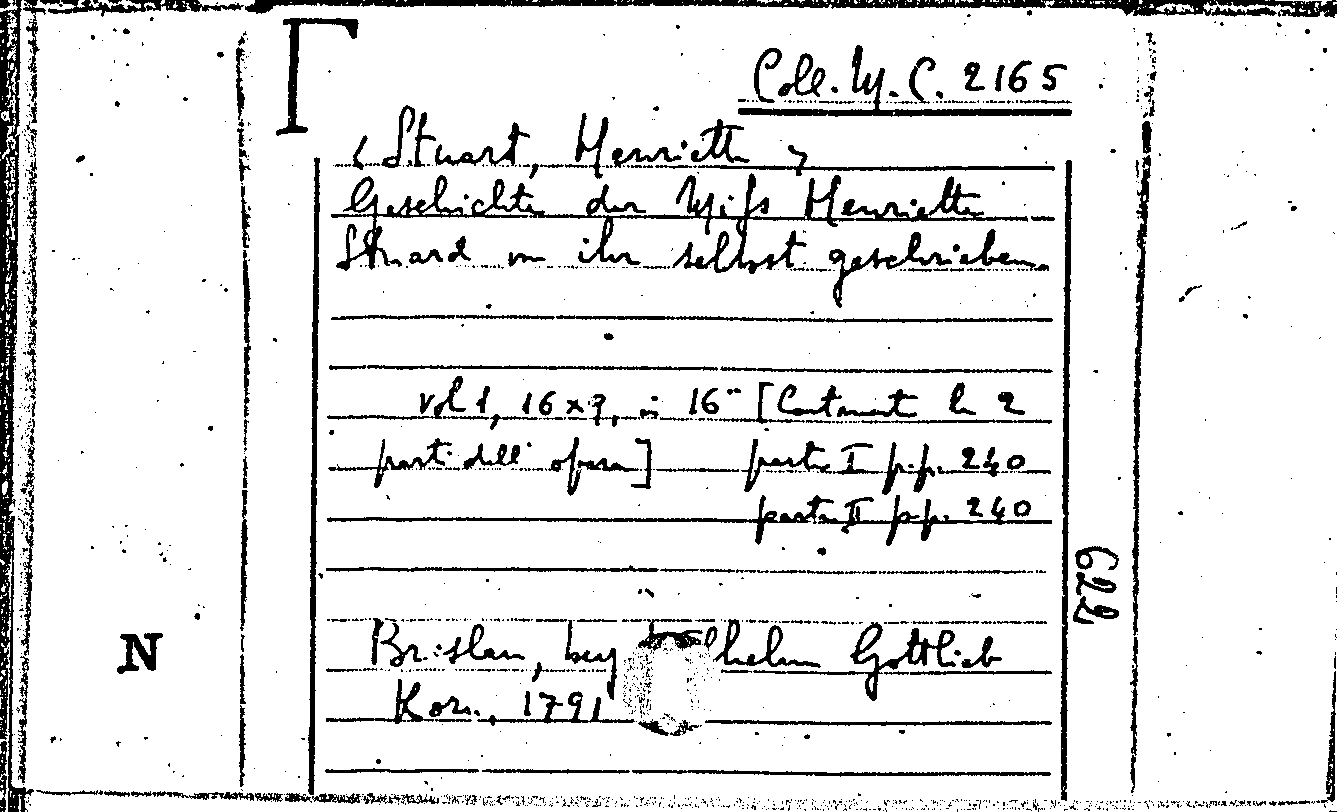 Coll. M. C. 2165
< Stuart, Henriette >
Geschichte der Miss Henriette
Stuard von ihr selbst geschrieben.
vol 1, 16 x 9, in 16° [Contenente le 2
parti dell' opera] parte I p.p. 240
parte II p.p. 240
622
N
Breslau, bey Wilhelm Gottlieb
Korn, 1791